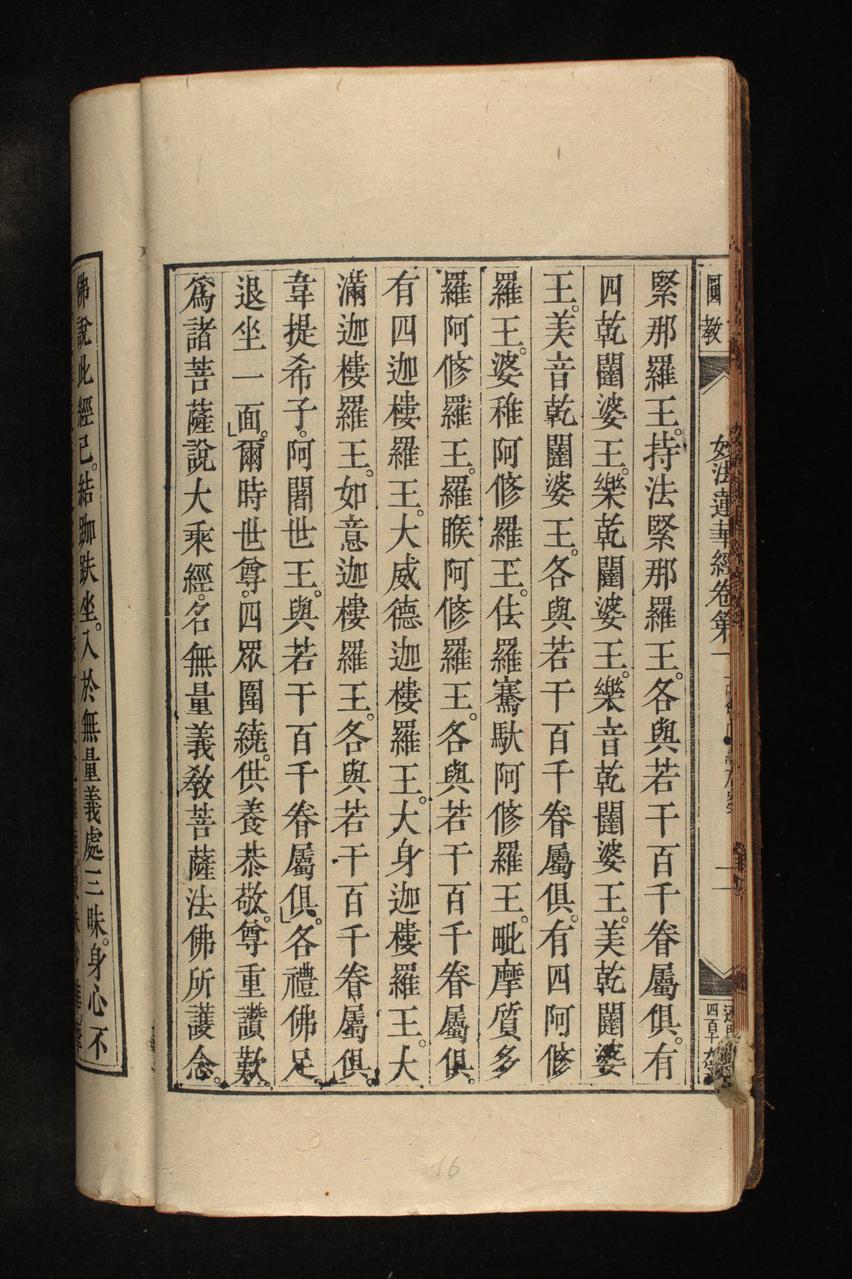 圓教
妙法蓮華經卷第一
緊那羅王。持法緊那羅王。各與若干百千眷屬俱。有
四乾闥婆王。樂乾闥婆王。樂音乾闥婆王。美乾闥婆
王。美音乾闥婆王。各與若干百千眷屬俱。有四阿修
羅王。婆稚阿修羅王。佉羅騫馱阿修羅王。毗摩質多
羅阿修羅王。羅睺阿修羅王。各與若干百千眷屬俱。
有四迦樓羅王。大威德迦樓羅王。大身迦樓羅王。大
滿迦樓羅王。如意迦樓羅王。各與若干百千眷屬俱。
韋提希子。阿闍世王。與若干百千眷屬俱。」各禮佛足。
退坐一面。」爾時世尊。四眾圍繞。供養恭敬。尊重讚歎。
為諸菩薩說大乘經。名無量義教菩薩法佛所護念。
佛說此經已。結跏趺坐。入於無量義處三昧。身心不
16